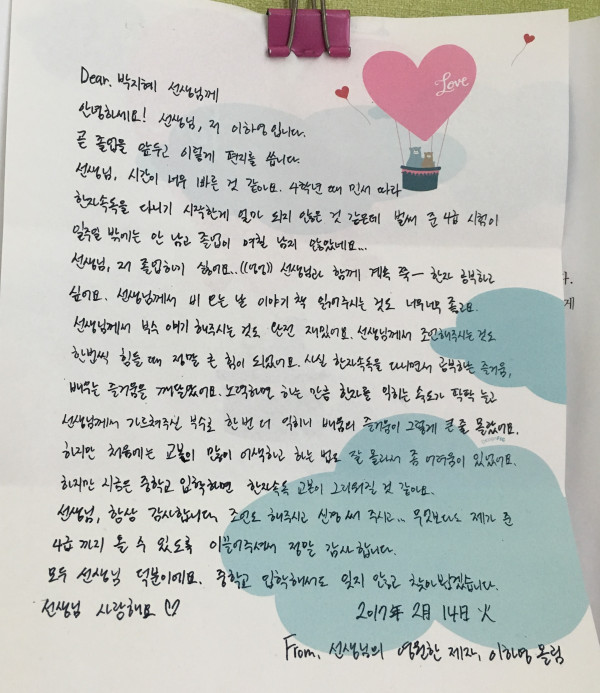 Love
Dear. 박지혜 선생님께
안녕하세요! 선생님, 저 이하영입니다.
곧 졸업을 앞두고 이렇게 편지를 씁니다.
선생님, 시간이 너무 빠른 것 같아요. 4학년 때 민서 따라
한자속독을 다니기 시작한게 얼마 되지 않은 것 같은데 벌써 준4급 시험이
일주일 밖에는 안 남고 졸업이 며칠 남지 않았네요...
선생님, 저 졸업하기 싫어요..((엉엉)) 선생님과 함께 계속 쭉- 한자 공부하고
싶어요. 선생님께서 비 오는 날 이야기 책 읽어주시는 것도 너무너무 좋고요.
선생님께서 부수 얘기 해주시는 것도 완전 재밌어요. 선생님께서 조언해주시는 것도
한번씩 힘들 때 정말 큰 힘이 되었어요. 사실 한자속독을 다니면서 공부하는 즐거움,
배우는 즐거움을 깨달았어요. 노력하면 하는 만큼 한자를 익히는 속도가 팍팍 늘고
선생님께서 가르쳐주신 부수로 한번 더 익히니 배움의 즐거움이 그렇게 큰 줄 몰랐어요.
하지만 처음에는 교본이 많이 어색하고 하는 법도 잘 몰라서 좀 어려움이 있었어요.
하지만 지금은 중학교 입학하면 한자속독 교본이 그리워질 것 같아요.
선생님, 항상 감사합니다. 조언도 해주시고 신경써 주시고... 무엇보다도 제가 준
4급까지 올 수 있도록 이끌어주셔서 정말 감사합니다.
모두 선생님 덕분이에요. 중학교 입학해서도 잊지 않고 찾아뵙겠습니다.
선생님 사랑해요 ♡ 2017年 2月 14日 火
From. 선생님의 영원한 제자, 이하영 올림